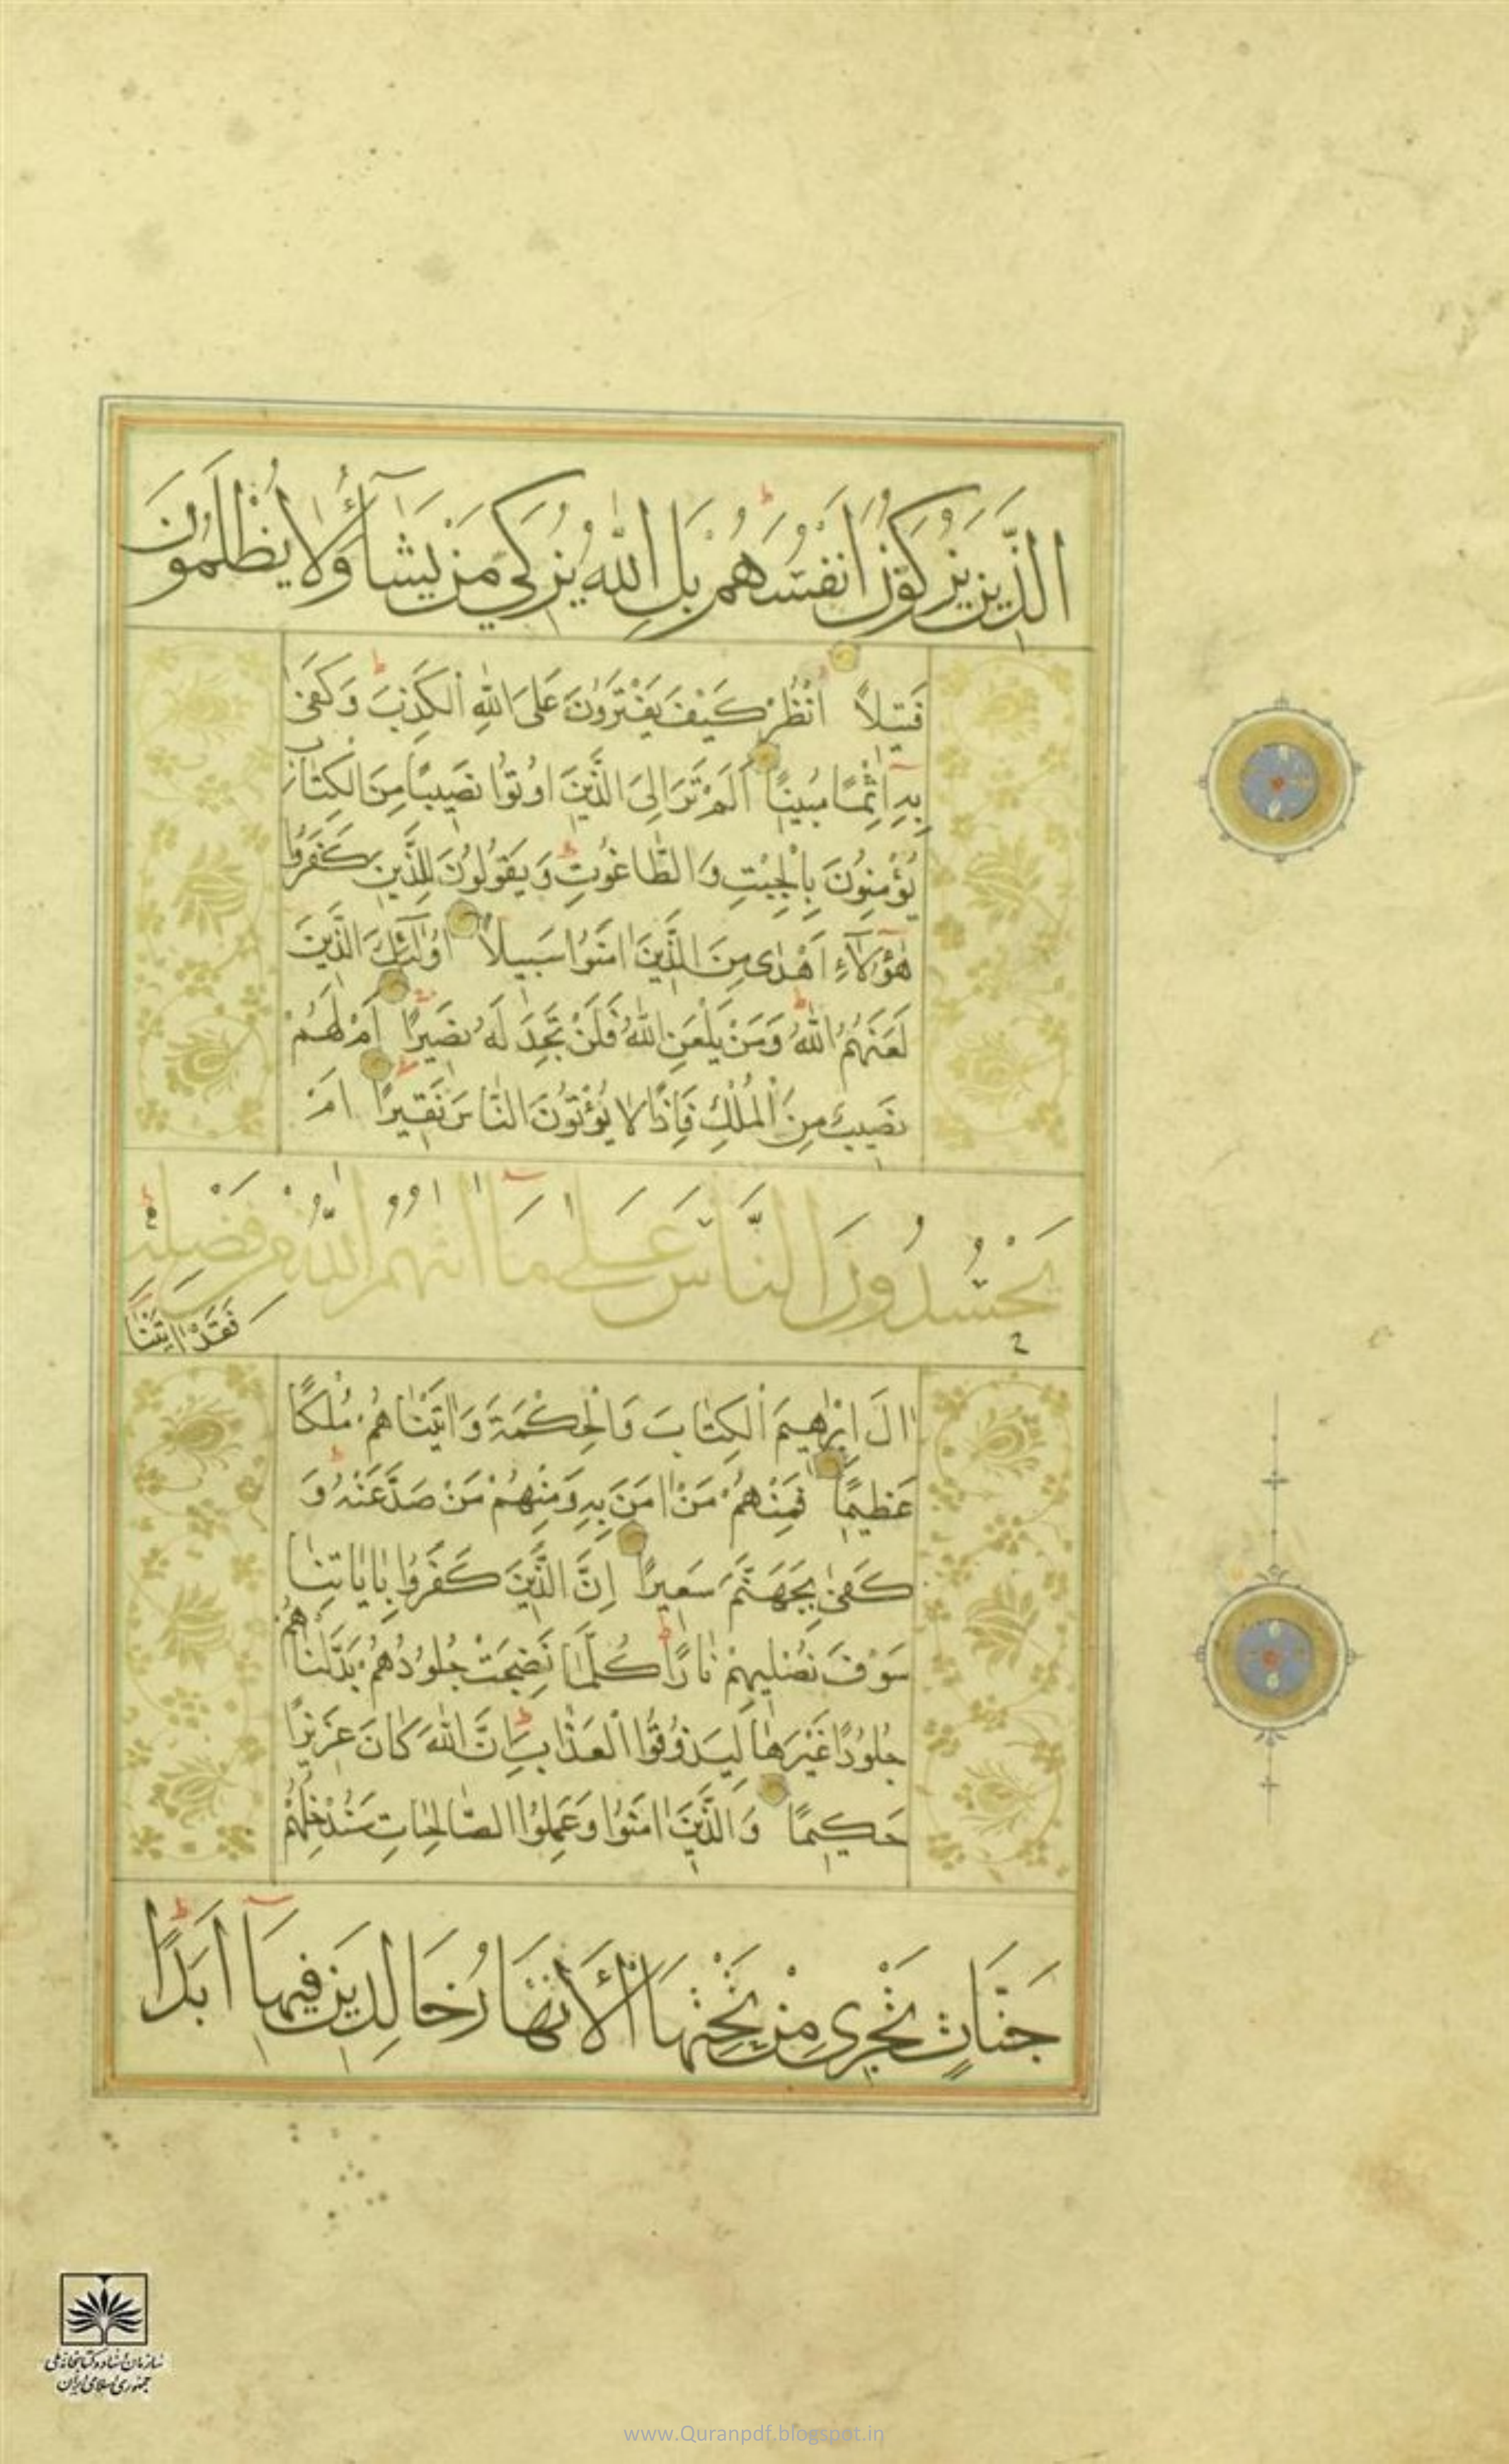 الَّذِينَ يُزَكُّونَ اَنْفُسَهُمْ بَلِ اللّٰهُ يُزَكِّي مَنْ يَشَآءُ وَلَا يُظْلَمُونَ
فَتِيلًا اُنْظُرْ كَيْفَ يَفْتَرُونَ عَلَى اللّٰهِ الْكَذِبَ وَكَفٰى
بِهِ اِثْمًا مُبِينًا اَلَمْ تَرَ اِلَى الَّذِينَ اُوتُوا نَصِيبًا مِنَ الْكِتَابِ
يُؤْمِنُونَ بِالْجِبْتِ وَالطَّاغُوتِ وَيَقُولُونَ لِلَّذِينَ كَفَرُوا
هٰؤُلَآءِ اَهْدٰى مِنَ الَّذِينَ اٰمَنُوا سَبِيلًا اُولٰٓئِكَ الَّذِينَ
لَعَنَهُمُ اللّٰهُ وَمَنْ يَلْعَنِ اللّٰهُ فَلَنْ تَجِدَ لَهُ نَصِيرًا اَمْ لَهُمْ
نَصِيبٌ مِنَ الْمُلْكِ فَاِذًا لَا يُؤْتُونَ النَّاسَ نَقِيرًا اَمْ
يَحْسُدُونَ النَّاسَ عَلٰى مَآ اٰتٰهُمُ اللّٰهُ مِنْ فَضْلِهِ
فَقَدْ اٰتَيْنَآ
اٰلَ اِبْرٰهِيمَ الْكِتَابَ وَالْحِكْمَةَ وَاٰتَيْنَاهُمْ مُلْكًا
عَظِيمًا فَمِنْهُمْ مَنْ اٰمَنَ بِهِ وَمِنْهُمْ مَنْ صَدَّ عَنْهُ وَ
كَفٰى بِجَهَنَّمَ سَعِيرًا اِنَّ الَّذِينَ كَفَرُوا بِاٰيَاتِنَا
سَوْفَ نُصْلِيهِمْ نَارًا كُلَّمَا نَضِجَتْ جُلُودُهُمْ بَدَّلْنَاهُمْ
جُلُودًا غَيْرَهَا لِيَذُوقُوا الْعَذَابَ اِنَّ اللّٰهَ كَانَ عَزِيزًا
حَكِيمًا وَالَّذِينَ اٰمَنُوا وَعَمِلُوا الصَّالِحَاتِ سَنُدْخِلُهُمْ
جَنَّاتٍ تَجْرِي مِنْ تَحْتِهَا الْأَنْهَارُ خَالِدِينَ فِيهَآ اَبَدًا
سازمان اسناد و کتابخانه ملی
جمهوری اسلامی ایران
www.Quranpdf.blogspot.in